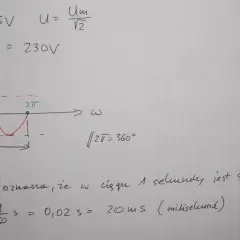 5V U = Um/√2
= 230V
2π ω
// 2π = 360°
oznacza, że w ciągu 1 sekundy jest
s = 0,02 s = 20 ms (milisekund)